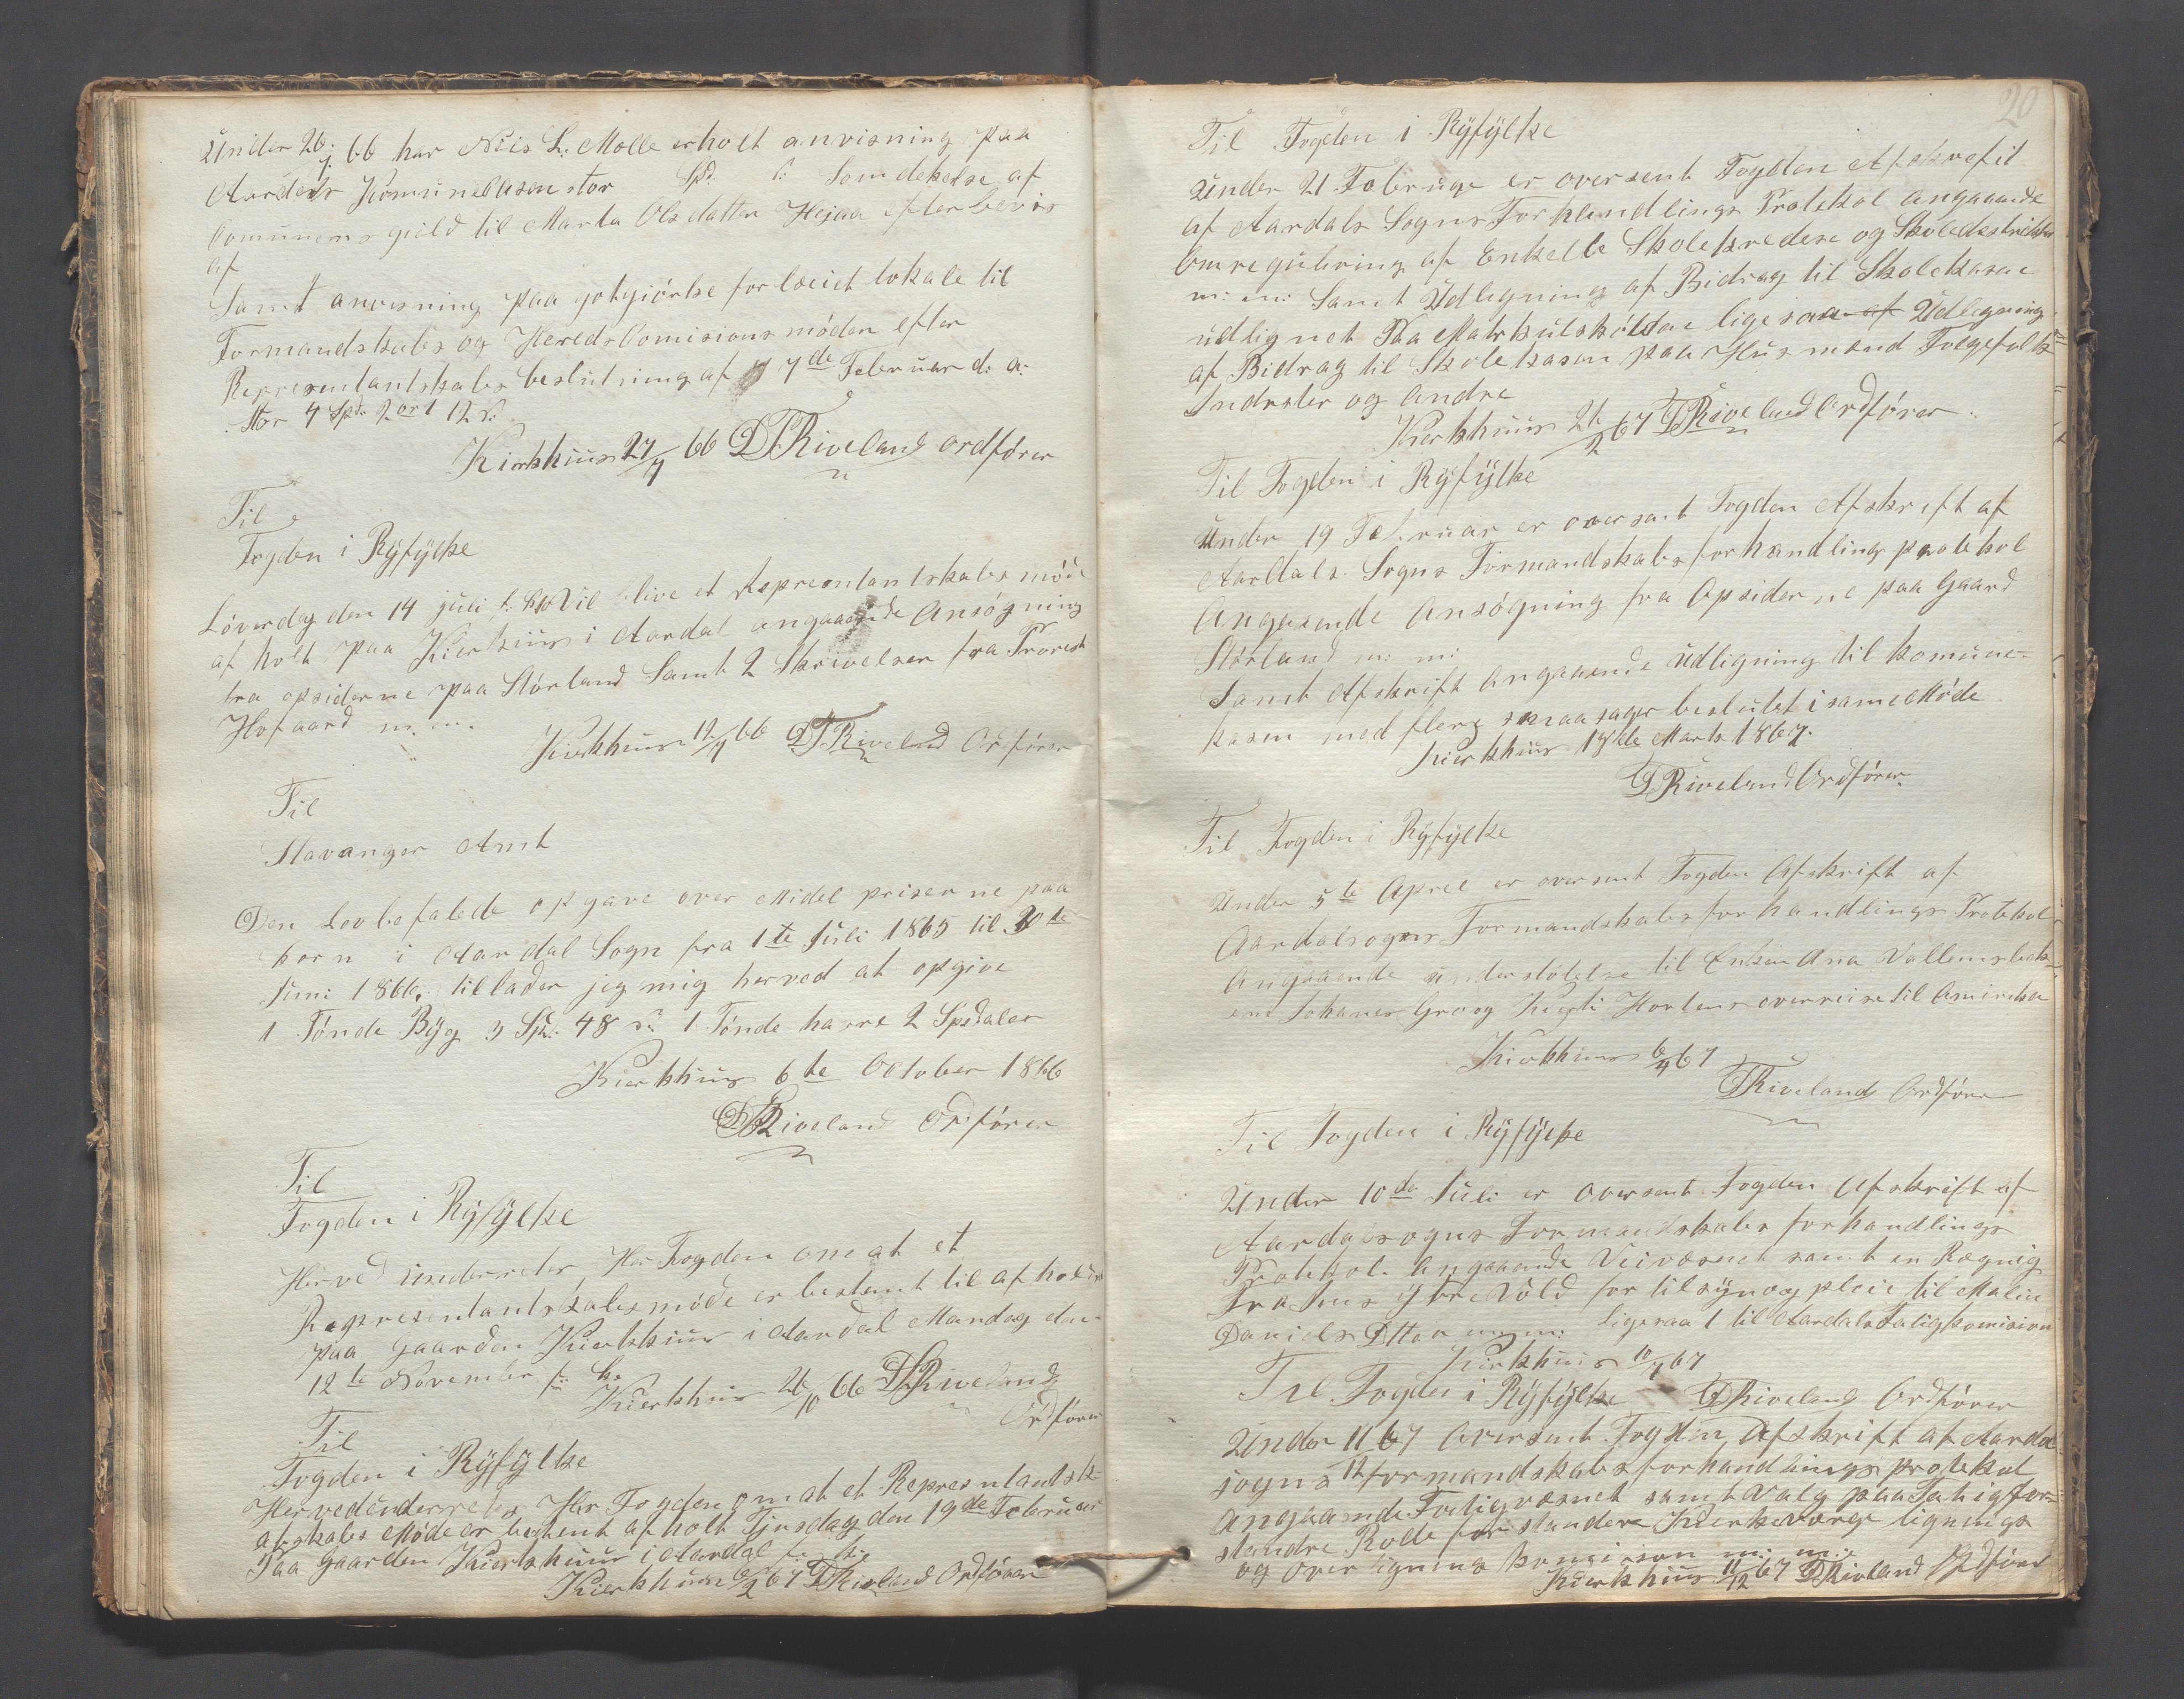 Under 26/7 66 har Niis L. Molle erholt anvisning paa
Aardals Komunekasen stor Spd. s. Som dekelse af
Comunens gield til Marta Olsdatter Hejaa efter bevis
af
Samt anvisning paa gotgiörlse for læiet lokale til
Formandskabs og HeredsComisions möden efter
Representantskabs beslutning af 7de Februar d: a:
Stor 4 Spd. 2 ort 12 s.
Kierkhuus 27/7 66 DTRiveland ordförer
Til
Fogden i Ryfylke
Löverdag den 14 juli f: k: Vil blive et Representantskabs möde
af holt paa Kierkhuus i Aardal angaaende Ansögning
fra opsiderne paa Störland Samt 2 Skrivelser fra Provest
Hofgaard m. m.
Kierkhuus 12/7 66 DTRiveland Ordförer
Til
Stavanger Amt
Den Lovbefalede opgave over Midel priserne paa
korn i Aardal Sogn fra 1te Juli 1865 til 30te
Juni 1866, tillader jeg mig herved at opgive
1 Tönde Byg 3 Spd. 48 s. 1 Tönde havre 2 Spedaler
Kierkhuus 6te October 1866
DTRiveland Ordförer
Til
Fogden i Ryfylke
Herved underretes Her Fogden om at et
Representantskabsmöde er bestemt til af holdes
paa gaarden Kierkhuus i Aardal Mandag den
12te November f: k:
Kierkhuus 26/10 66 DTRiveland
Ordförer
Til
Fogden i Ryfylke
Herved underretes Her Fogden om at et Representantsk-
abskabs Möde er bestemt af holt Tjusdag den 19de Februar
Paa Gaarden Kierkhuus i Aardal f: k:
Kierkhuus /2 67 DTRiveland Ordförer
20
Til Fogden i Ryfylke
Under 21 Februar er oversent Fogden Afskreft
af Aardals Sogns Forhandlings Protekol angaaende
Omregulering af Enkelte Skolekredese og Skoledestrikter
m: m: Samt Udligning af Bidrag til Skolekasen
udlignet Paa Matrkulskölden ligesaa af Udlegning
af Bidrag til Skolekasen paa Husmænd Folgefolk
Indrster og Andre
Kierkhuus 21/2 67 DTRiveland Ordförer
Til Fogden i Ryfylke
Under 19 Februar er oversent Fogden Afskrift af
Aardals Sogns Formandskabs forhandlings protekol
Angaaende Ansögning fra Opsiderne paa Gaard
Störland m: m:
Samt Afskrift Angaaende Udligning til komune-
kasen med flere smaa sager beslutet i same Möde
Kierkhuus 18de Marts 1867.
DTRiveland Ordförer
Til Fogden i Ryfylke
Under 5te Apreel er oversent Fogden Afskrift af
Aardalsogns Formandskabs forhandlings Protekol
angaaende understötelse til Enken Ana Vallemsbak-
en Johanes Gro og Kirsti Hortens overreise til Amirika
Kierkhuus 6/4 67
DTRiveland Ordförer
Til Fogden i Ryfylke
Under 10de Juli er oversent Fogden Afskrift af
Aardalsogns Formandskabs forhandlings
Protekol Angaaende Veivæsnet samt en Regnig
fra Jens ytre Vold for tilsyn og pleie til Malene
Daniels Dtter m: m: ligesaa 1 til Aardals Fatigkomision
Kierkhuus 10/7 67
DTRiveland Ordförer
Til Fogden i Ryfylke
Under 11/12 67 Oversent Fogden Afskrift af Aardal
sogns formandskabs forhandlings protekol
angaaende Fatigvæsnet samt Valg paa Fatigfor-
standre Rodeforstandere Kierkeværge lignings
og overlignings komision m: m:
Kierkhuus 11/12 67 DTRiveland Ordförer